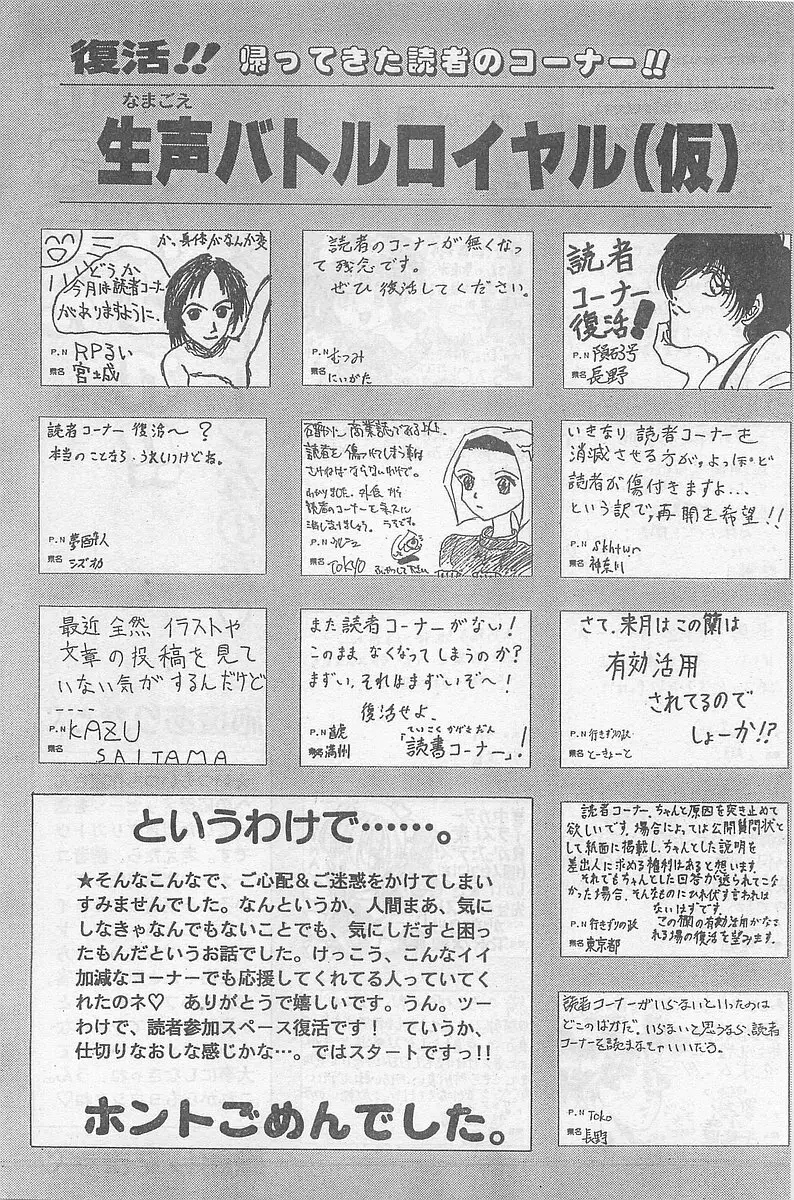 復活!! 帰ってきた読者のコーナー!!
なまごえ
生声バトルロイヤル(仮)
か、身体がなんか変
どうか
今月は読者コーナー
がありますように、
P.N RPるい
県名 宮城
読者のコーナーが無くなっ
て残念です。
ぜひ復活してください。
P.N むつみ
県名 にいがた
読者
コーナー
復活!
P.N
県名 長野
読者コーナー復活〜?
本当のことなら、うれしいけどね。
P.N
県名 シズオカ
商業誌である以上、
読者を傷つけてしまう事は
さけねばならないわけで。
わかりました。
読者のコーナーを
消し去りましょう。うそです。
P.N
県名 TOKYO
いきなり読者コーナーを
消滅させる方が、よっぽど
読者が傷付きますよ...
という訳で、再開を希望!!
P.N skhtwn
県名 神奈川
最近全然イラストや
文章の投稿を見て
いない気がするんだけど
----
P.N KAZU
県名 SAITAMA
また読者コーナーがない!
このままなくなってしまうのか?
まずい、それはまずいぞ〜!
復活せよ、
ていこく かがき だん
「読書コーナー」!
P.N 直虎
県名 満州
さて、来月はこの蘭は
有効活用
されてるので
しょーか!?
P.N 行きずりの政
県名 とーきょーと
というわけで……。
★そんなこんなで、ご心配&ご迷惑をかけてしまい
すみませんでした。なんというか、人間まあ、気に
しなきゃなんでもないことでも、気にしだすと困っ
たもんだというお話でした。けっこう、こんなイイ
加減なコーナーでも応援してくれてる人っていてく
れたのネ♡ ありがとうで嬉しいです。うん。ツー
わけで、読者参加スペース復活です! ていうか、
仕切りなおしな感じかな…。ではスタートですっ!!
ホントごめんでした。
読者コーナー、ちゃんと原因を突き止めて
欲しいです。場合によっては公開質問状と
して紙面に掲載し、ちゃんとした説明を
差出人に求める権利はあると想います。
それでもちゃんとした回答が送られてこな
かった場合、そんなものにひれ伏す言われは
ないはずです。
この欄の有効活用がなさ
れる場の復活を望みます。
P.N 行きずりの政
県名 東京都
読者コーナーがいらないといったのは
どこのばかだ。いらないと思うなら、読者
コーナーを読まなきゃいいだろ。
P.N Toko
県名 長野